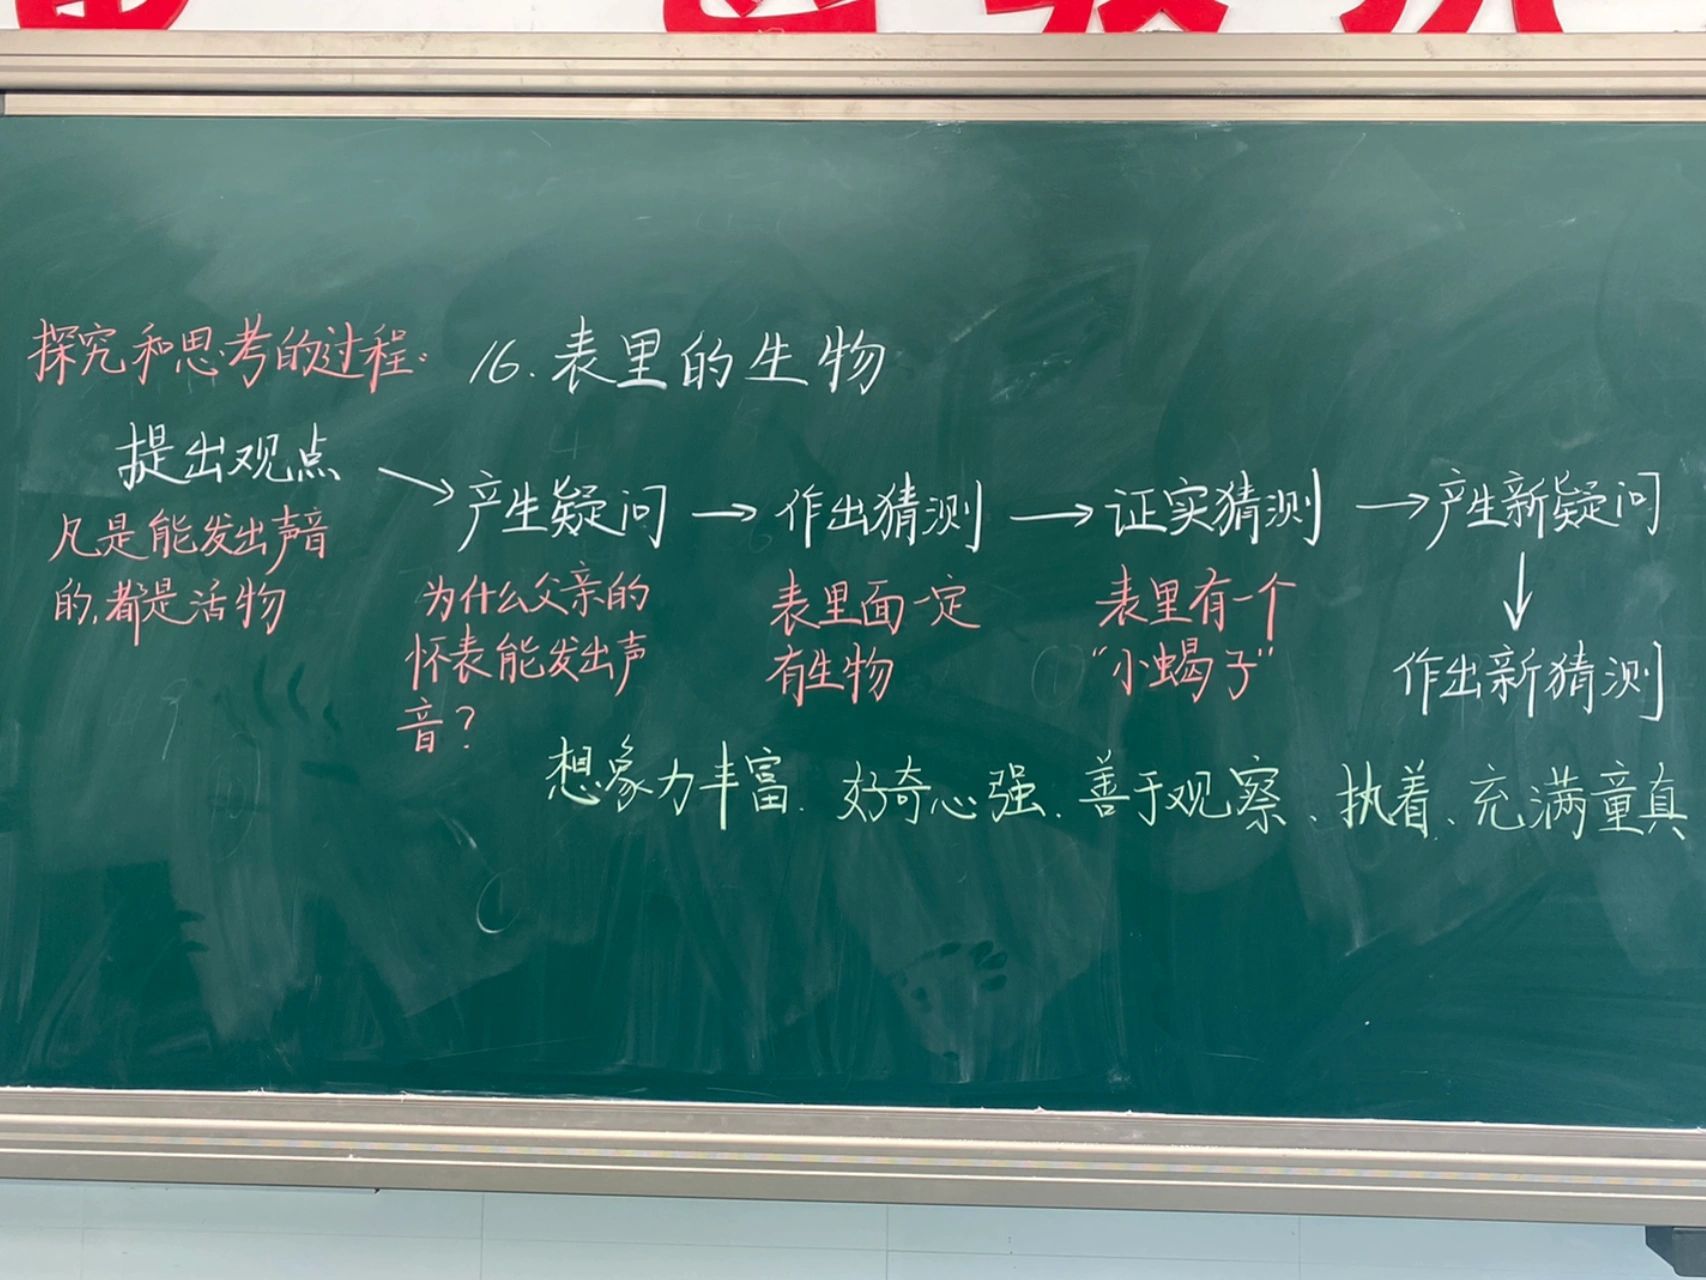 探究和思考的过程:
16.表里的生物
提出观点
凡是能发出声音
的,都是活物
→产生疑问→作出猜测→证实猜测→产生新疑问
为什么父亲的
怀表能发出声
音?
表里面一定
有生物
表里有一个
“小蝎子”
↓
作出新猜测
想象力丰富、好奇心强、善于观察、执着、充满童真